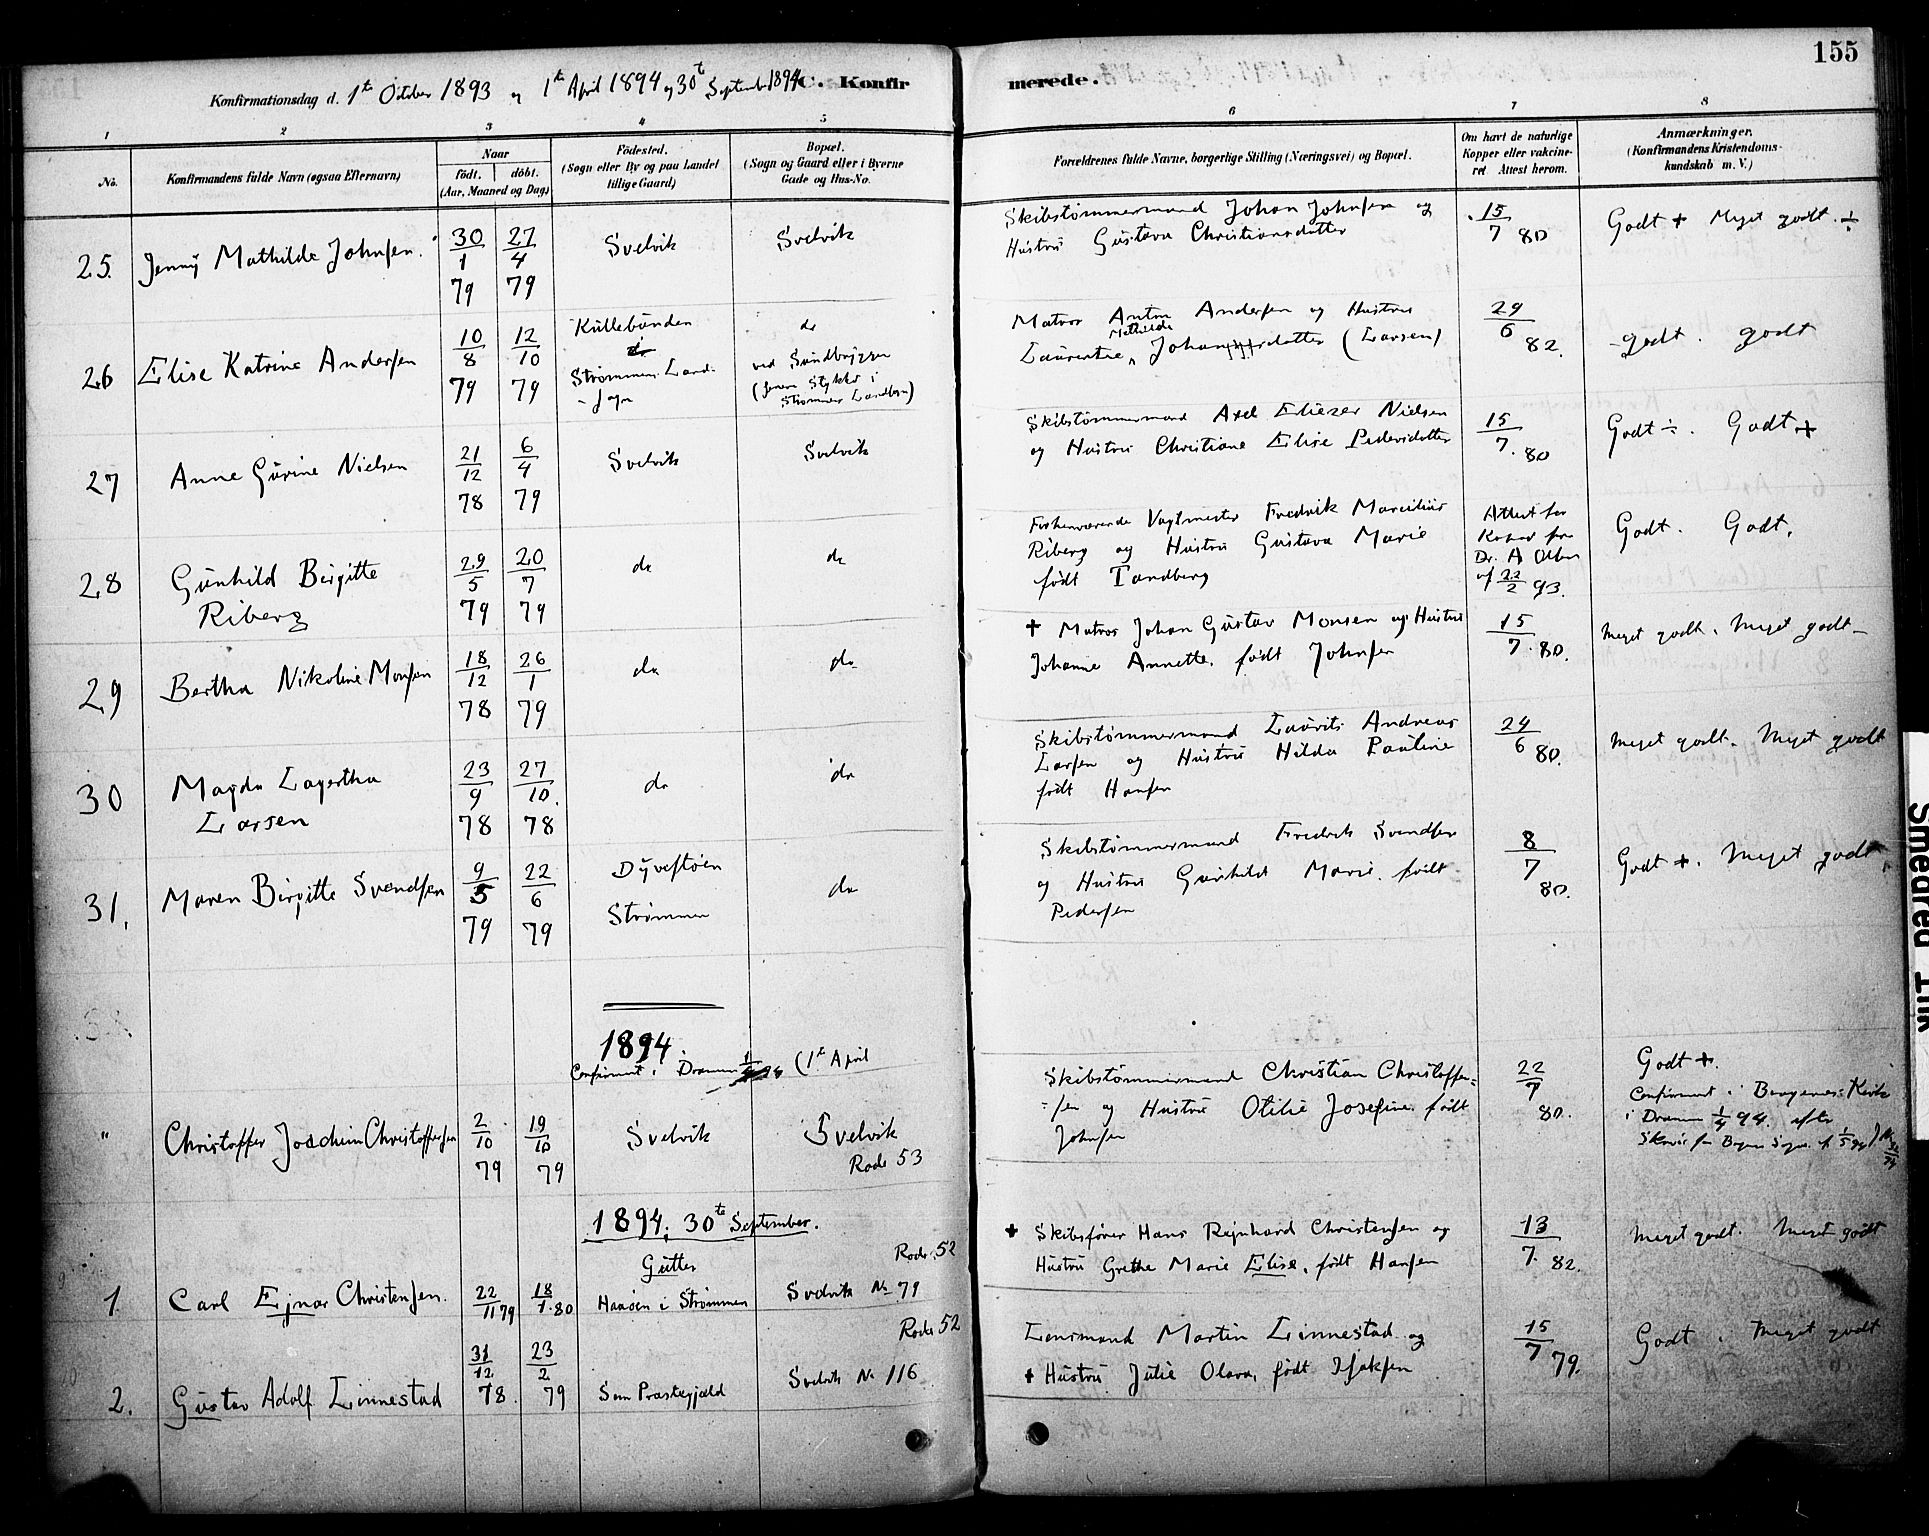 155
Konfirmationsdag d. 1te October 1893 og 1te April 1894 og 30te September 1894 C. Konfirmerede.
1 2 3 4 5 6 7 8
No.
Konfirmandens fulde Navn (ogsaa Efternavn)
Naar
födt. döbt.
(Aar, Maaned og Dag)
Födested.
(Sogn eller By og paa Landet
tillige Gaard)
Bopæl.
(Sogn og Gaard eller i Byerne
Gade og Hus-No.
Forældrenes fulde Navne, borgerlige Stilling (Næringsvei) og Bopæl.
Om havt de naturlige
Kopper eller vakcine-
ret Attest herom.
Anmærkninger.
(Konfirmandens Kristendoms-
kundskab m. V.)
25. Jenny Mathilde Johnsen. 30/1 79 27/4 79 Svelvik Svelvik
Skibstømmermand Johan Johnsen og
Hustru Gustava Christiansdatter
15/7 80 Godt + Meget godt ÷
26 Elise Katrine Andersen 10/8 79 12/10 79
Küllebunden
Strømmen Land-
-sogn
do
ved Sandbryggen
(Jensens Stykke i
Strømmen Landsogn)
Matros Anton Andersen og Hustru
Laurentze Mathilde Johansdatter (Larsen)
29/6 82. godt. godt
27 Anne Gurine Nielsen 21/12 78 6/4 79 Svelvik Svelvik
Skibstømmermand Axel Eliezer Nielsen
og Hustru Christiane Elise Pedersdatter
15/7. 80 Godt ÷. Godt +
28 Gunhild Birgitte
Riberg
29/5 79 20/7 79 do do
Forhenværende Vagtmester Fredrik Marcilius
Riberg og Hustru Gustava Marie
født Tandberg
Attest for
Kopper fra
Dr. A Olsen
af 22/2 93.
Godt. Godt.
29 Bertha Nikoline Monsen 18/12 78 26/1 79 do do
+ Matros Johan Gustav Monsen og Hustru
Johanne Annette, født Johnsen
15/7. 80. Meget godt. Meget godt
30 Magda Lagertha
Larsen
23/9 78 27/10. 78 do do
Skibstømmermand Laurits Andreas
Larsen og Hustru Hilda Pauline
født Hansen
24/6 80. Meget godt. Meget godt
31. Maren Birgitte Svendsen 9/5 79 22/6 79
Dyvestøen
Strømmen
do
Skibstømmermand Fredrik Svendsen
og Hustru Gunhild Marie født
Pedersen
8/7 80. Godt +. Meget godt
1894.
Confirmert i Drammen (1te April
" Christoffer Joachim Christoffersen 2/10 79 19/10 79 Svelvik
Svelvik
Rode 53
Skibstömmermand Christian Christoffer=
=sen og Hustru Otilie Josefine født
Johnsen
22/7 80.
Godt +.
Confirmeret i Bragernes Kirke
i Drammen 1/4 94. efter
1894. 30te September.
Gutter
1. Carl Ejnar Christensen. 22/11 79 18/1. 80 Haaöen i Strømmen
Rode 52
Svelvik No 79
+ Skibsfører Hans Rejnhard Christensen og
Hustru Grethe Marie Elise, født Hansen
13/7. 82. Meget godt. Meget godt
2. Gustav Adolf Linnestad 31/12 78. 23/2 79 Sem Præstegjæld
Rode 52
Svelvik No 116
Lensmand Martin Linnestad og
+ Hustru Julie Olava, født Isaksen
15/7 79. Godt. Meget godt
Smeared Ink